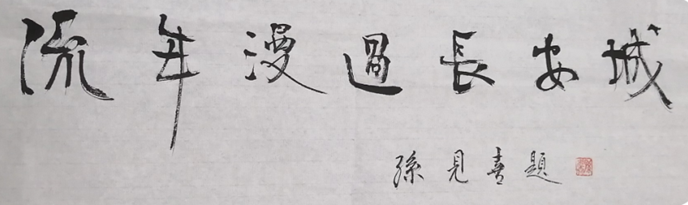 流年漫過長安城
孫見喜題